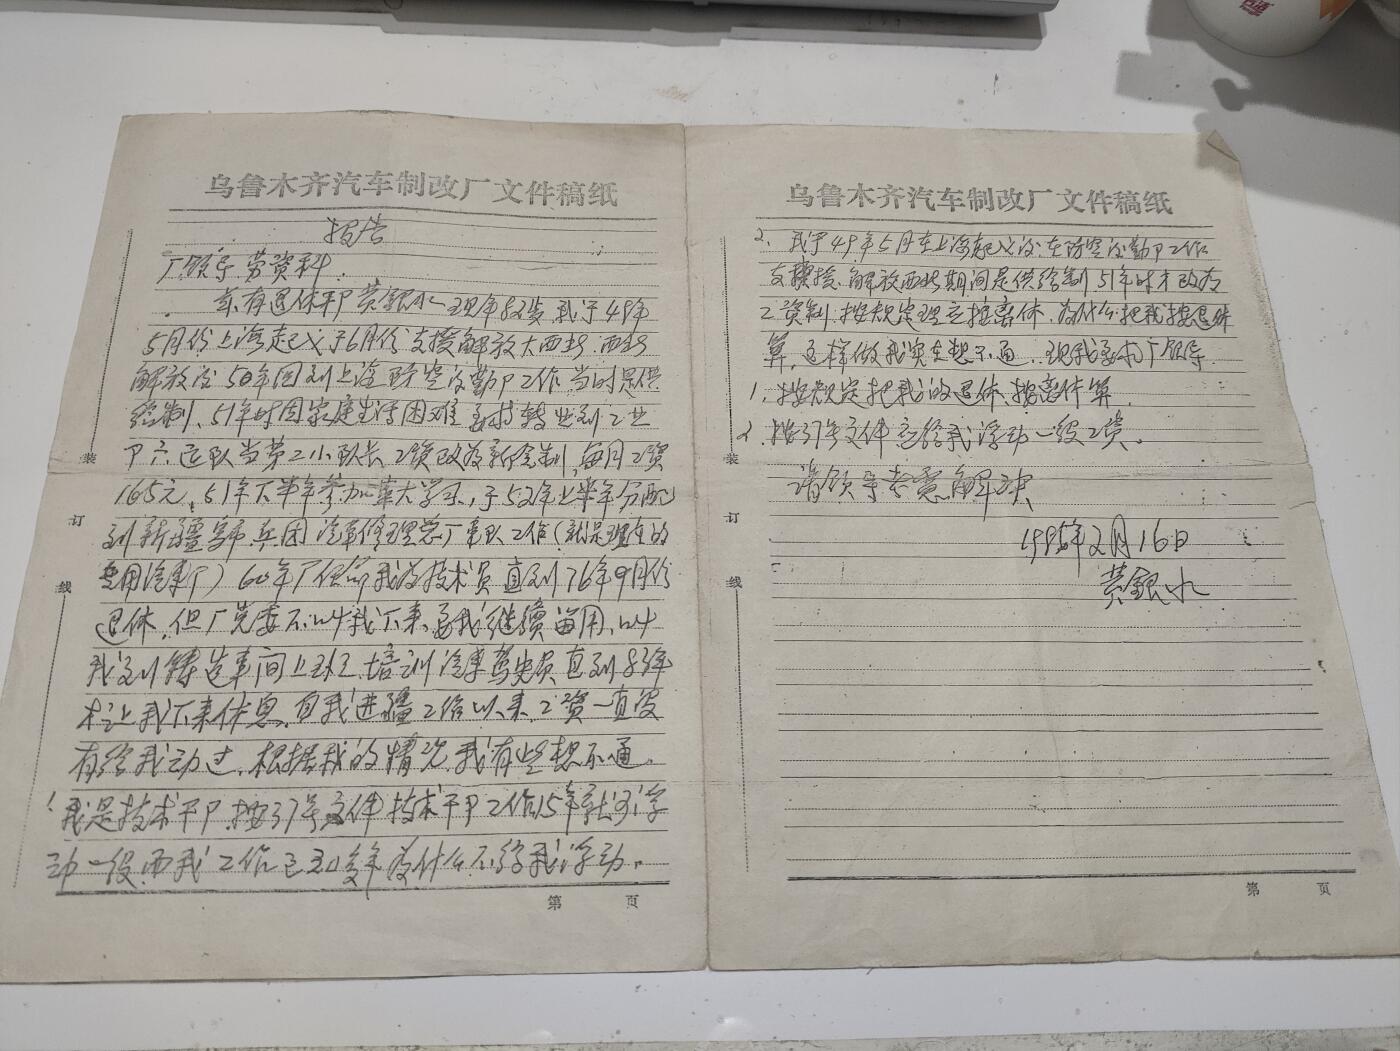 乌鲁木齐汽车制改厂文件稿纸
报告
厂领导劳资科.
兹有退休干卩黄银水 现年 岁,我于49年
5月份上海起义于6月份支援解放大西北.西北
解放后50年回到上海防空后勤卩工作.当时是供
给制、51年时因家庭生活困难要求转业到工业
卩六运队当第二小队长工资改为薪金制,每月工资
165元.51年下半年参加革大学习,于52年上半年分配
到新疆 兵团汽车修理总厂车队工作(就是现在的
专用汽车厂)60年厂任命我为技术员直到76年9月份
退休.但厂党委不叫我下来.要我继续留用.叫
我到铸造车间上班.培训汽车驾驶员直到 年
才让我下来休息.自我进疆工作以来.工资一直没
有给我动过.根据我的情况.我有些想不通.
1.我是技术干卩.按37号文件技术干卩工作15年就 浮
动一级.而我工作已 年为什么不给我浮动.
装
订
线
第 页
乌鲁木齐汽车制改厂文件稿纸
2.我于49年5月在上海起义后.在防空后勤卩工作
支援 .解放西北期间是供给制51年时才改为
工资制.按规定理应按离休.为什么把我按退休
算,这样做我实在想不通.现我要求厂领导
1.按规定把我的退休.按离休算.
2.按37号文件应给我浮动一级工资.
请领导考虑解决
198 年2月16日
黄银水
装
订
线
第 页